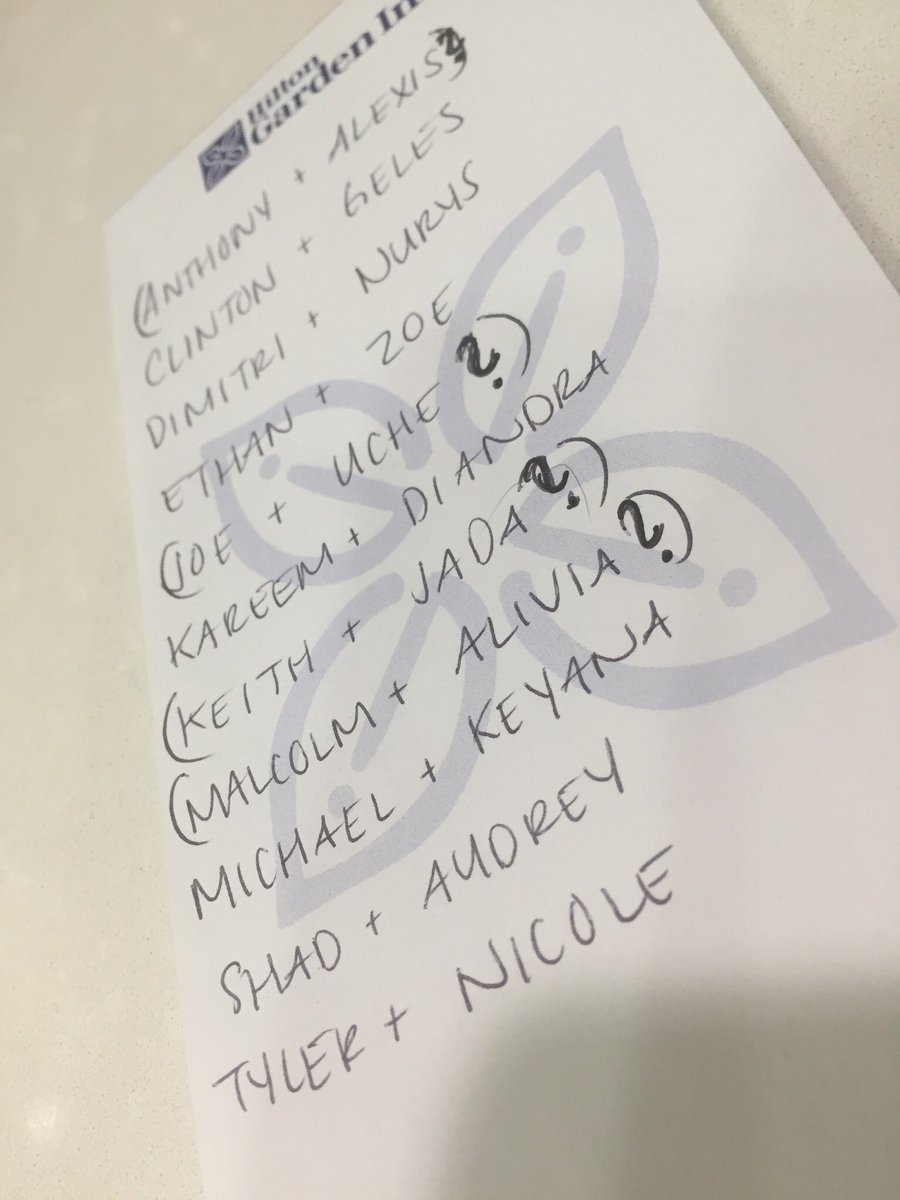 Hilton
Garden In
(ANTHONY + ALEXIS?)
CLINTON + GELES
DIMITRI + NURYS
ETHAN + ZOE
(JOE + UCHE ?)
KAREEM + DIANDRA
(KEITH + JADA ?)
(MALCOLM + ALIVIA ?)
MICHAEL + KEYANA
SHAD + AUDREY
TYLER + NICOLE